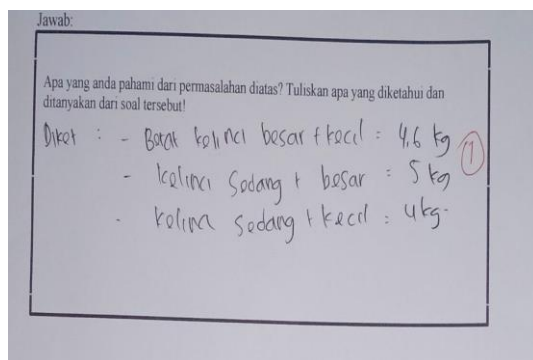 Jawab:
Apa yang anda pahami dari permasalahan diatas? Tuliskan apa yang diketahui dan
ditanyakan dari soal tersebut!
Diket : - Berat kelinci besar + kecil = 4,6 kg
1
- kelinci sedang + besar = 5 kg
- kelinci sedang + kecil = 4 kg.